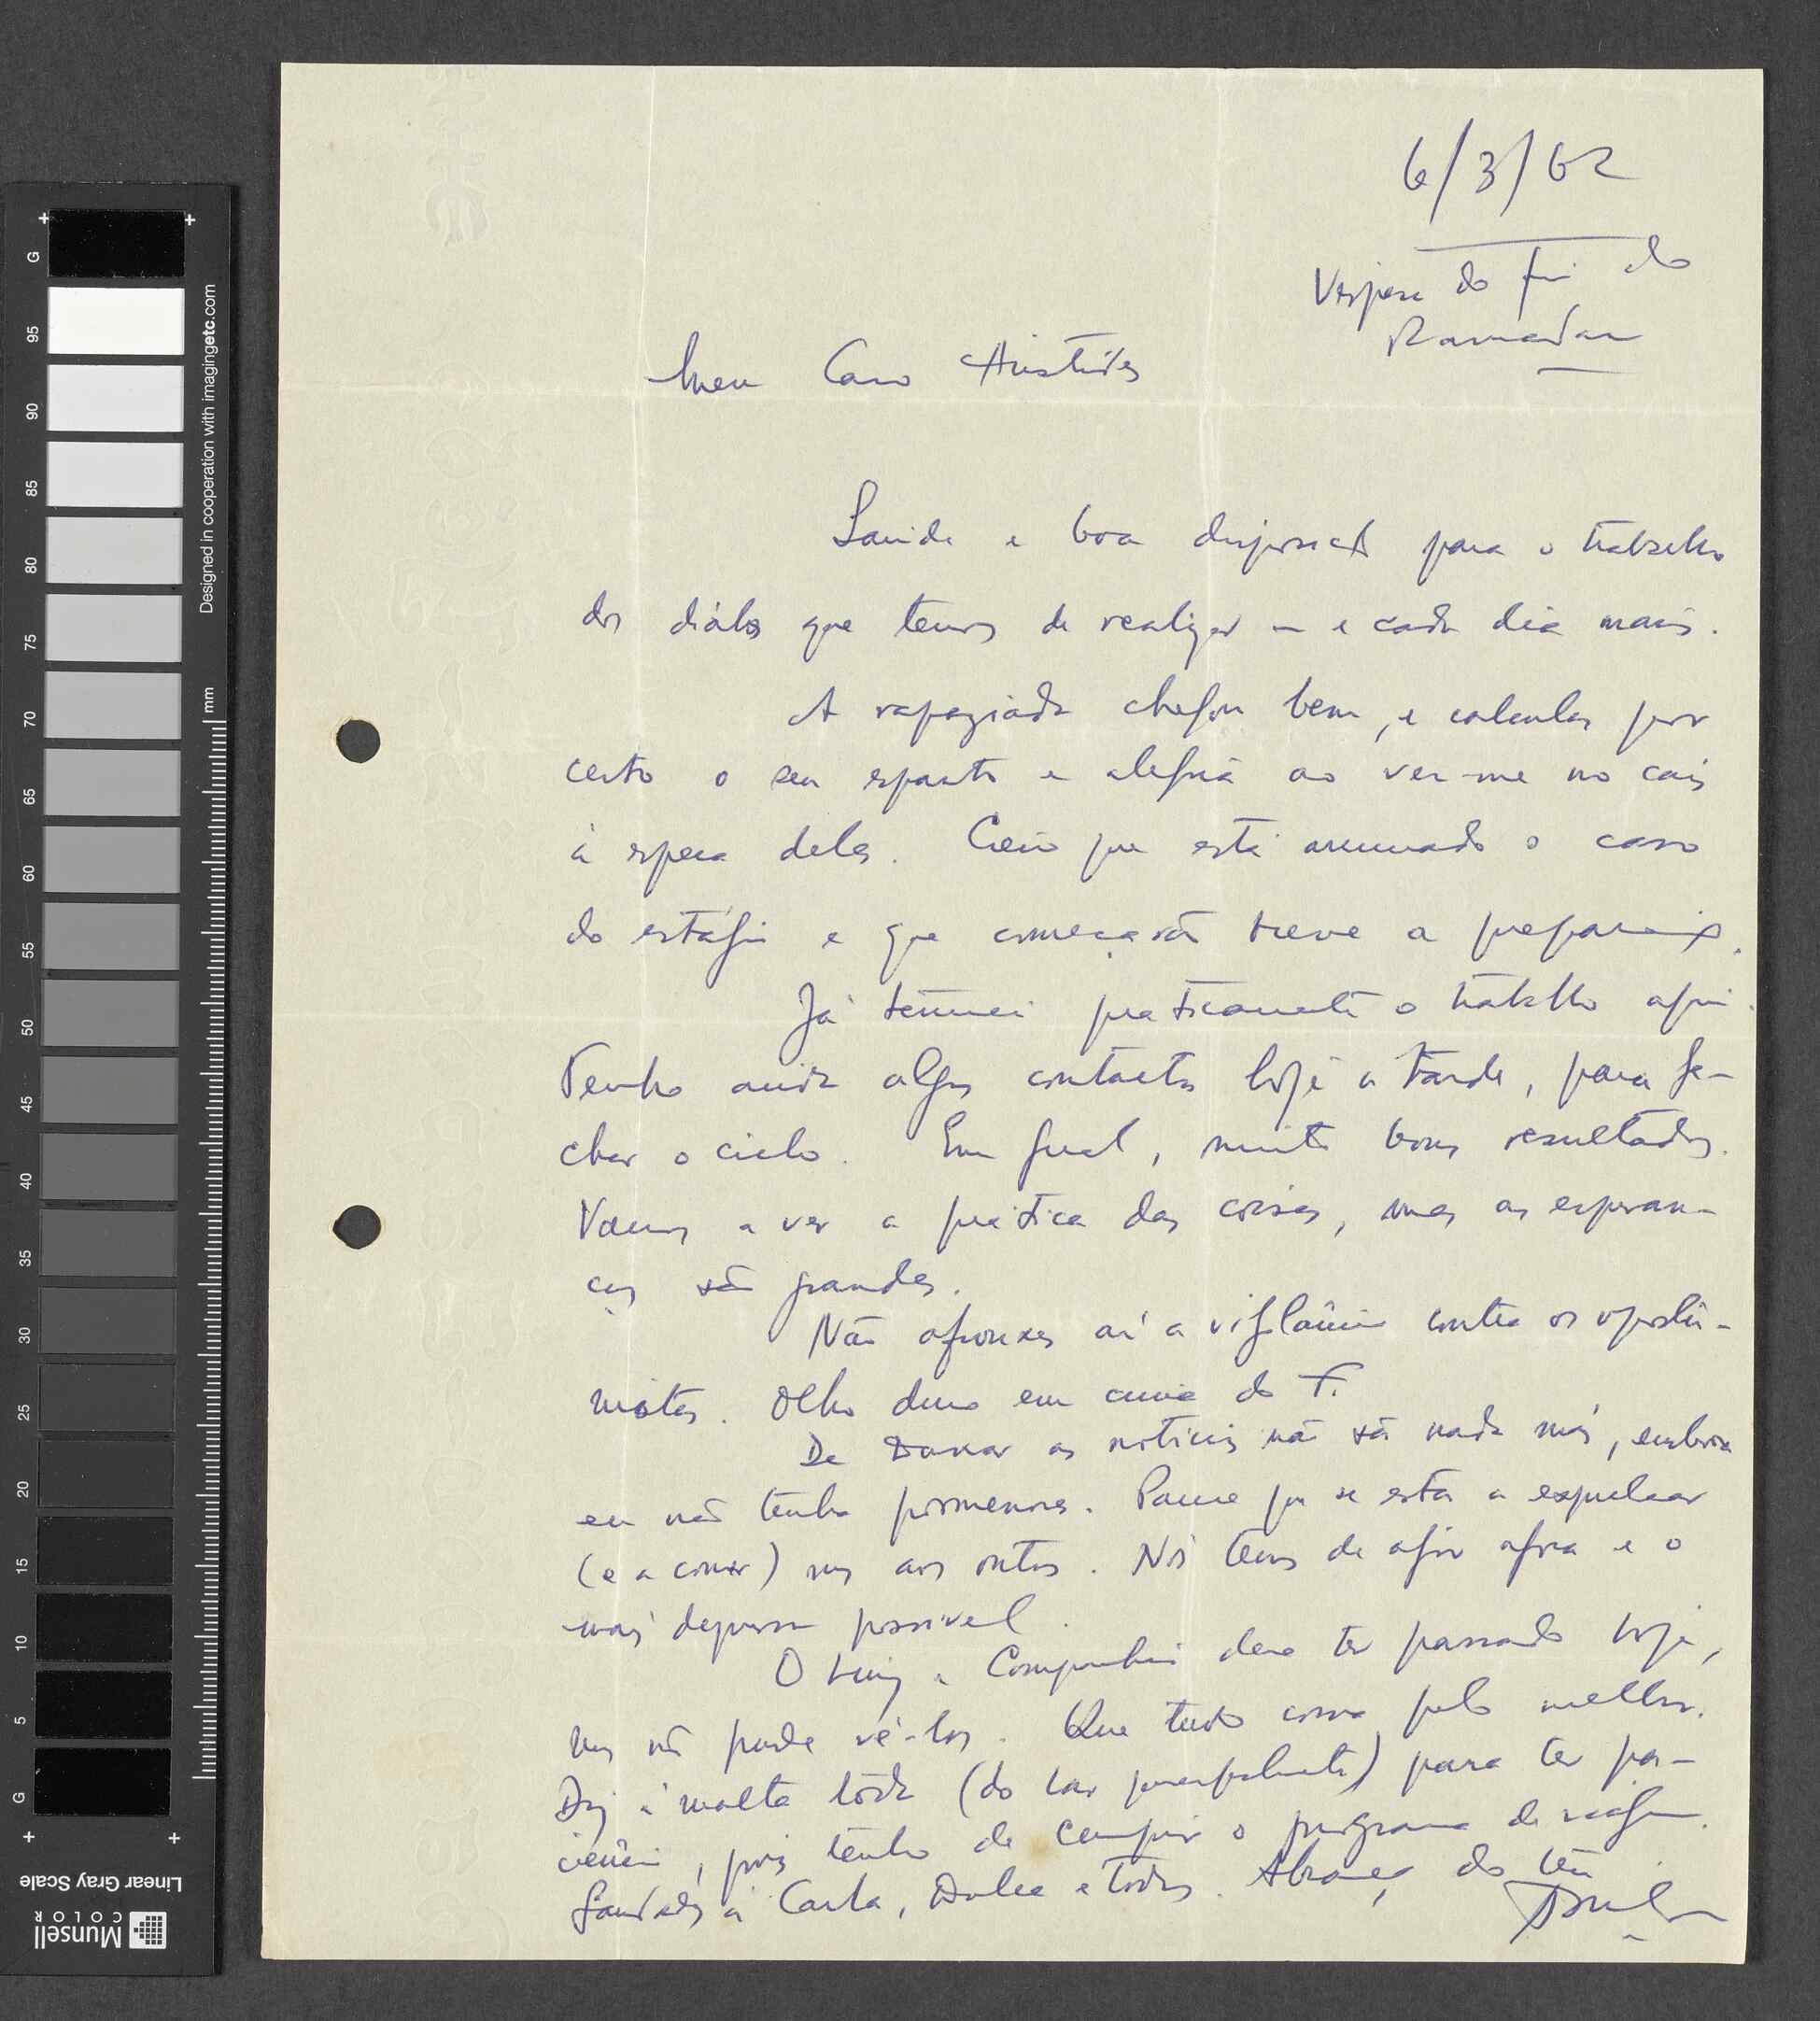 6/3/62
Vespera do fim do
Ramadan
Meu Caro Aristides
Saúde e boa disposição para o trabalho
dos diabos que temos de realizar — e cada dia mais.
A rapaziada chegou bem, e calculas por
certo o seu espanto e alegria ao ver-me no cais
à espera deles. Creio que está arrumado o caso
do estágio e que começarão breve a preparação.
Já terminei praticamente o trabalho aqui.
Tenho ainda alguns contactos hoje à tarde, para fe-
char o ciclo. Em geral, muito bons resultados.
Vamos a ver a prática das coisas, mas as esperan-
ças são grandes.
Não afrouxes aí a vigilância contra os oportu-
nistas. Olho duro em cima do F.
De Dakar as notícias não são nada más, embora
eu não tenha pormenores. Parece que se está a expulsar
(e a comer) uns aos outros. Nós temos de agir agora e o
mais depressa possível.
O Luiz e Companhia deve ter passado hoje,
mas não pude vê-los. Que tudo corra pelo melhor.
Diz à malta toda (do Lar principalmente) para ter pa-
ciência, pois tenho de cumprir o programa de viagem.
Saudades à Carla, Dulce e todos. Abraços do teu
G
95
90
85
80
75
70
65
60
55
50
45
40
35
30
25
20
15
10
5
G
mm
Designed in cooperation with imagingetc.com
Linear Gray Scale
Munsell
COLOR